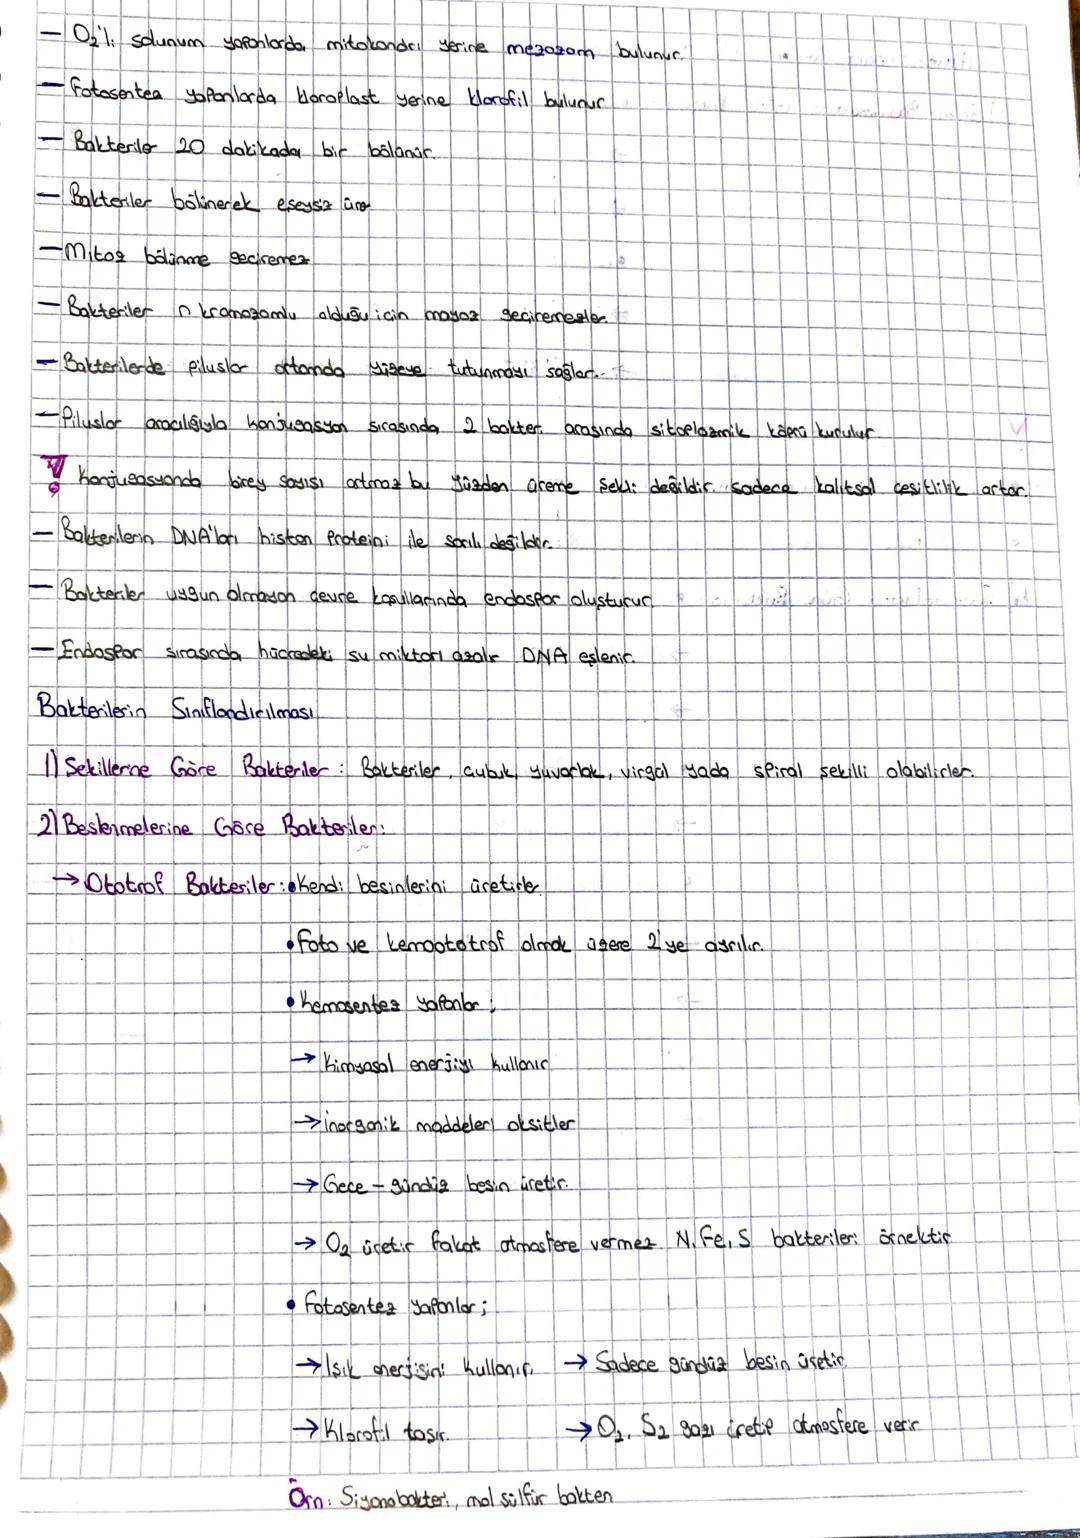 — O₂'li solunum yapanlarda mitokondri yerine mezozom bulunur.
— Fotosentez yapanlarda kloroplast yerine klorofil bulunur
— Bakteriler 20 dakikada bir bölünür.
— Bakteriler bölünerek eşeysiz ürer
— Mitoz bölünme geçiremez
— Bakteriler n kromozomlu olduğu için mayoz geçiremezler.
— Bakterilerde piluslar ortamda yüzeye tutunmayı sağlar.
— Piluslar aracılığıyla konjugasyon sırasında 2 bakteri arasında sitoplazmik köprü kurulur
! Konjugasyonda birey sayısı artmaz bu yüzden üreme şekli değildir. sadece kalıtsal çeşitlilik artar.
— Bakterilerin DNA'ları histon proteini ile sarılı değildir.
— Bakteriler uygun olmayan çevre koşullarında endospor oluşturur.
— Endospor sırasında hücredeki su miktarı azalır DNA eşlenir.
Bakterilerin Sınıflandırılması
1) Şekillerine Göre Bakteriler : Bakteriler, çubuk, yuvarlak, virgül yada spiral şekilli olabilirler.
2) Beslenmelerine Göre Bakteriler:
→ Ototrof Bakteriler: • Kendi besinlerini üretirler
• Foto ve kemoototrof olmak üzere 2'ye ayrılır.
• Kemosentez yapanlar ;
→ Kimyasal enerjiyi kullanır
→ inorganik maddeleri oksitler
→ Gece - gündüz besin üretir.
→ O₂ üretir fakat atmosfere vermez. N, Fe, S bakterileri örnektir
• Fotosentez yapanlar ;
→ Işık enerjisini kullanır. → Sadece gündüz besin üretir.
→ Klorofil taşır. → O₂, S₂ gazı üretip atmosfere verir
Örn: Siyanobakteri, mol sülfür bakteri